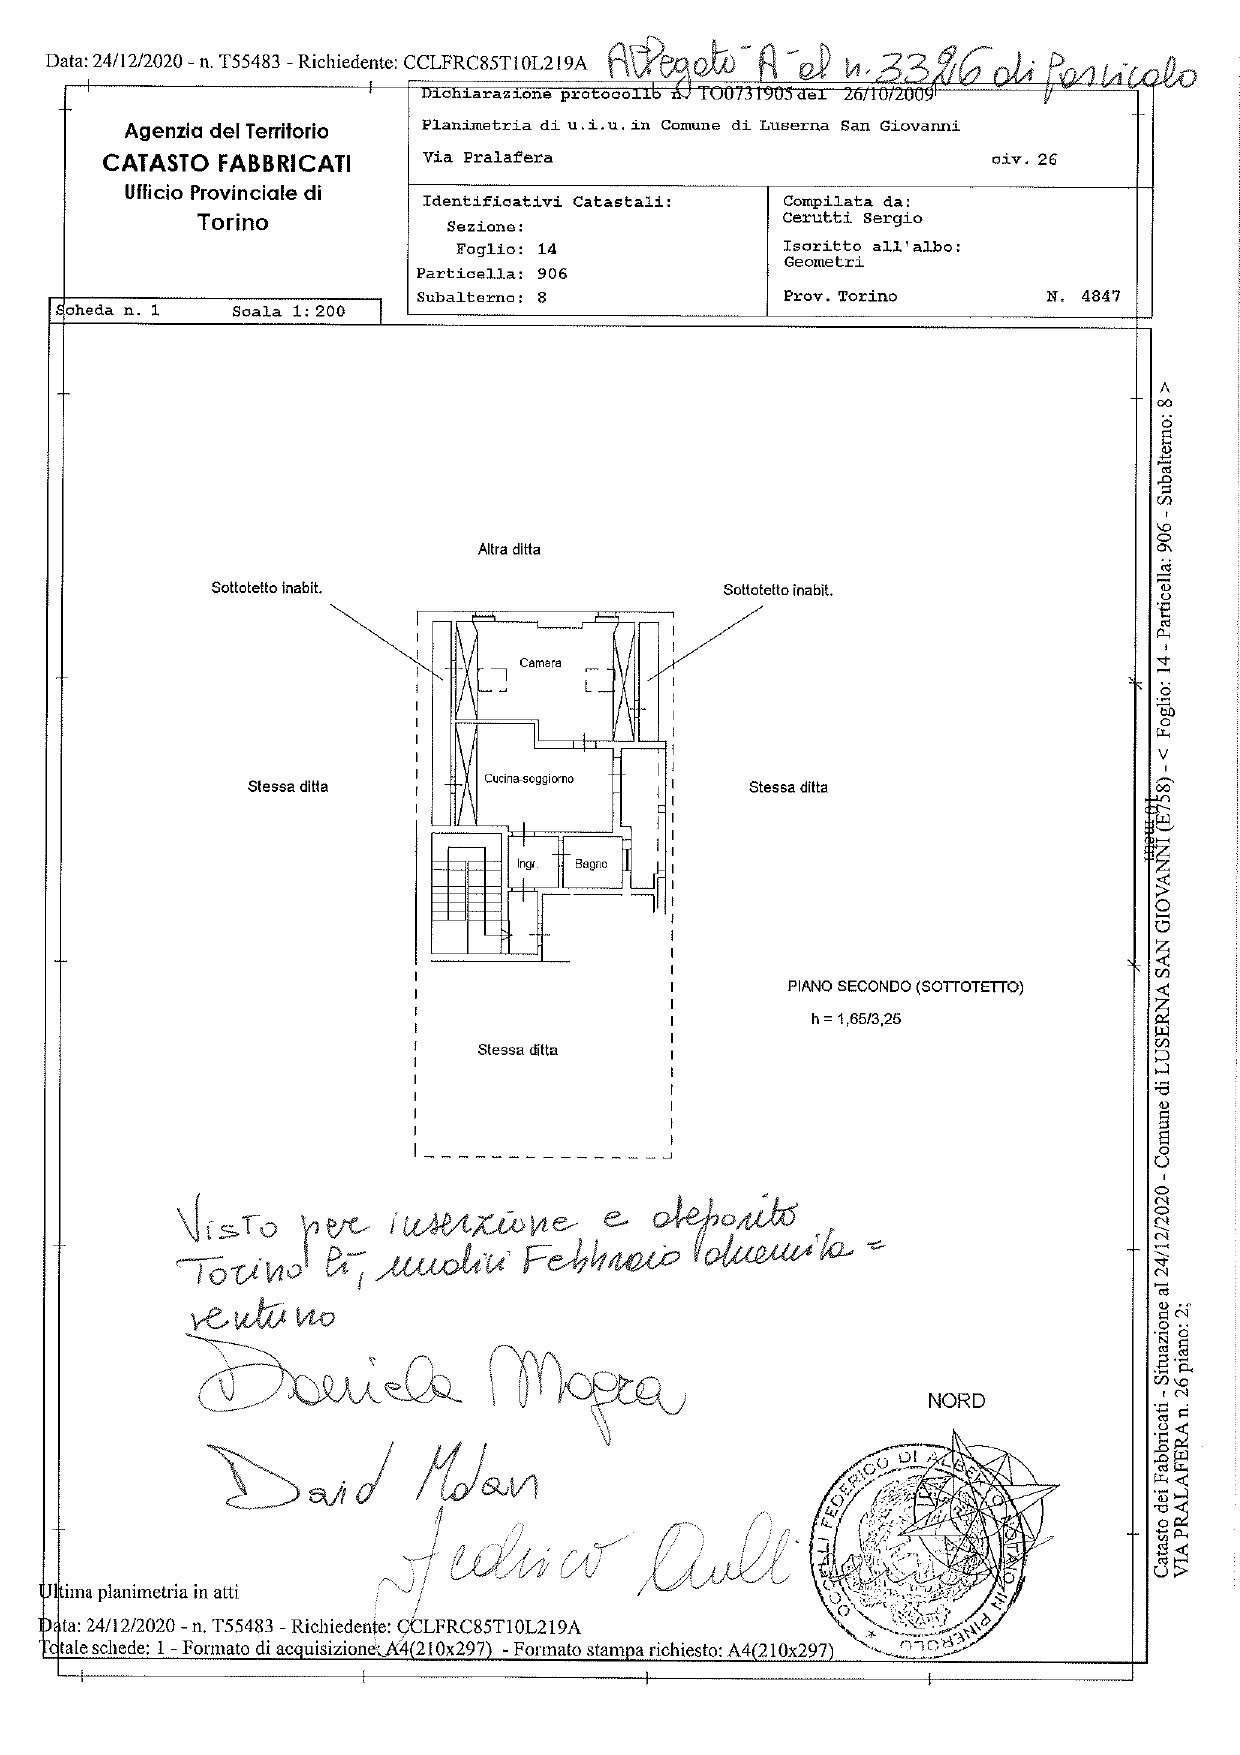 Data: 24/12/2020 - n. T55483 - Richiedente: CCLFRC85T10L219A
Allegato "A" al n. 3326 di fascicolo
Agenzia del Territorio
CATASTO FABBRICATI
Ufficio Provinciale di
Torino
Dichiarazione protocollo n. TO0731905 del 26/10/2009
Planimetria di u.i.u. in Comune di Luserna San Giovanni
Via Pralafera civ. 26
Identificativi Catastali:
Sezione:
Foglio: 14
Particella: 906
Subalterno: 8
Compilata da:
Cerutti Sergio
Iscritto all'albo:
Geometri
Prov. Torino N. 4847
Scheda n. 1 Scala 1:200
Altra ditta
Sottotetto inabit. Sottotetto inabit.
Camera
Cucina-soggiorno
Stessa ditta Stessa ditta
Ingr. Bagno
PIANO SECONDO (SOTTOTETTO)
h = 1,65/3,25
Stessa ditta
Visto per inserzione e deposito
Torino lì, undici Febbraio duemila=
ventuno
Daniela Magra
David
Federico
NORD
OCCELLI FEDERICO DI ALBERTO NOTAIO IN PINEROLO *
Ultima planimetria in atti
Data: 24/12/2020 - n. T55483 - Richiedente: CCLFRC85T10L219A
Totale schede: 1 - Formato di acquisizione: A4(210x297) - Formato stampa richiesto: A4(210x297)
Catasto dei Fabbricati - Situazione al 24/12/2020 - Comune di LUSERNA SAN GIOVANNI (E758) - < Foglio: 14 - Particella: 906 - Subalterno: 8 >
VIA PRALAFERA n. 26 piano: 2;
10 metri